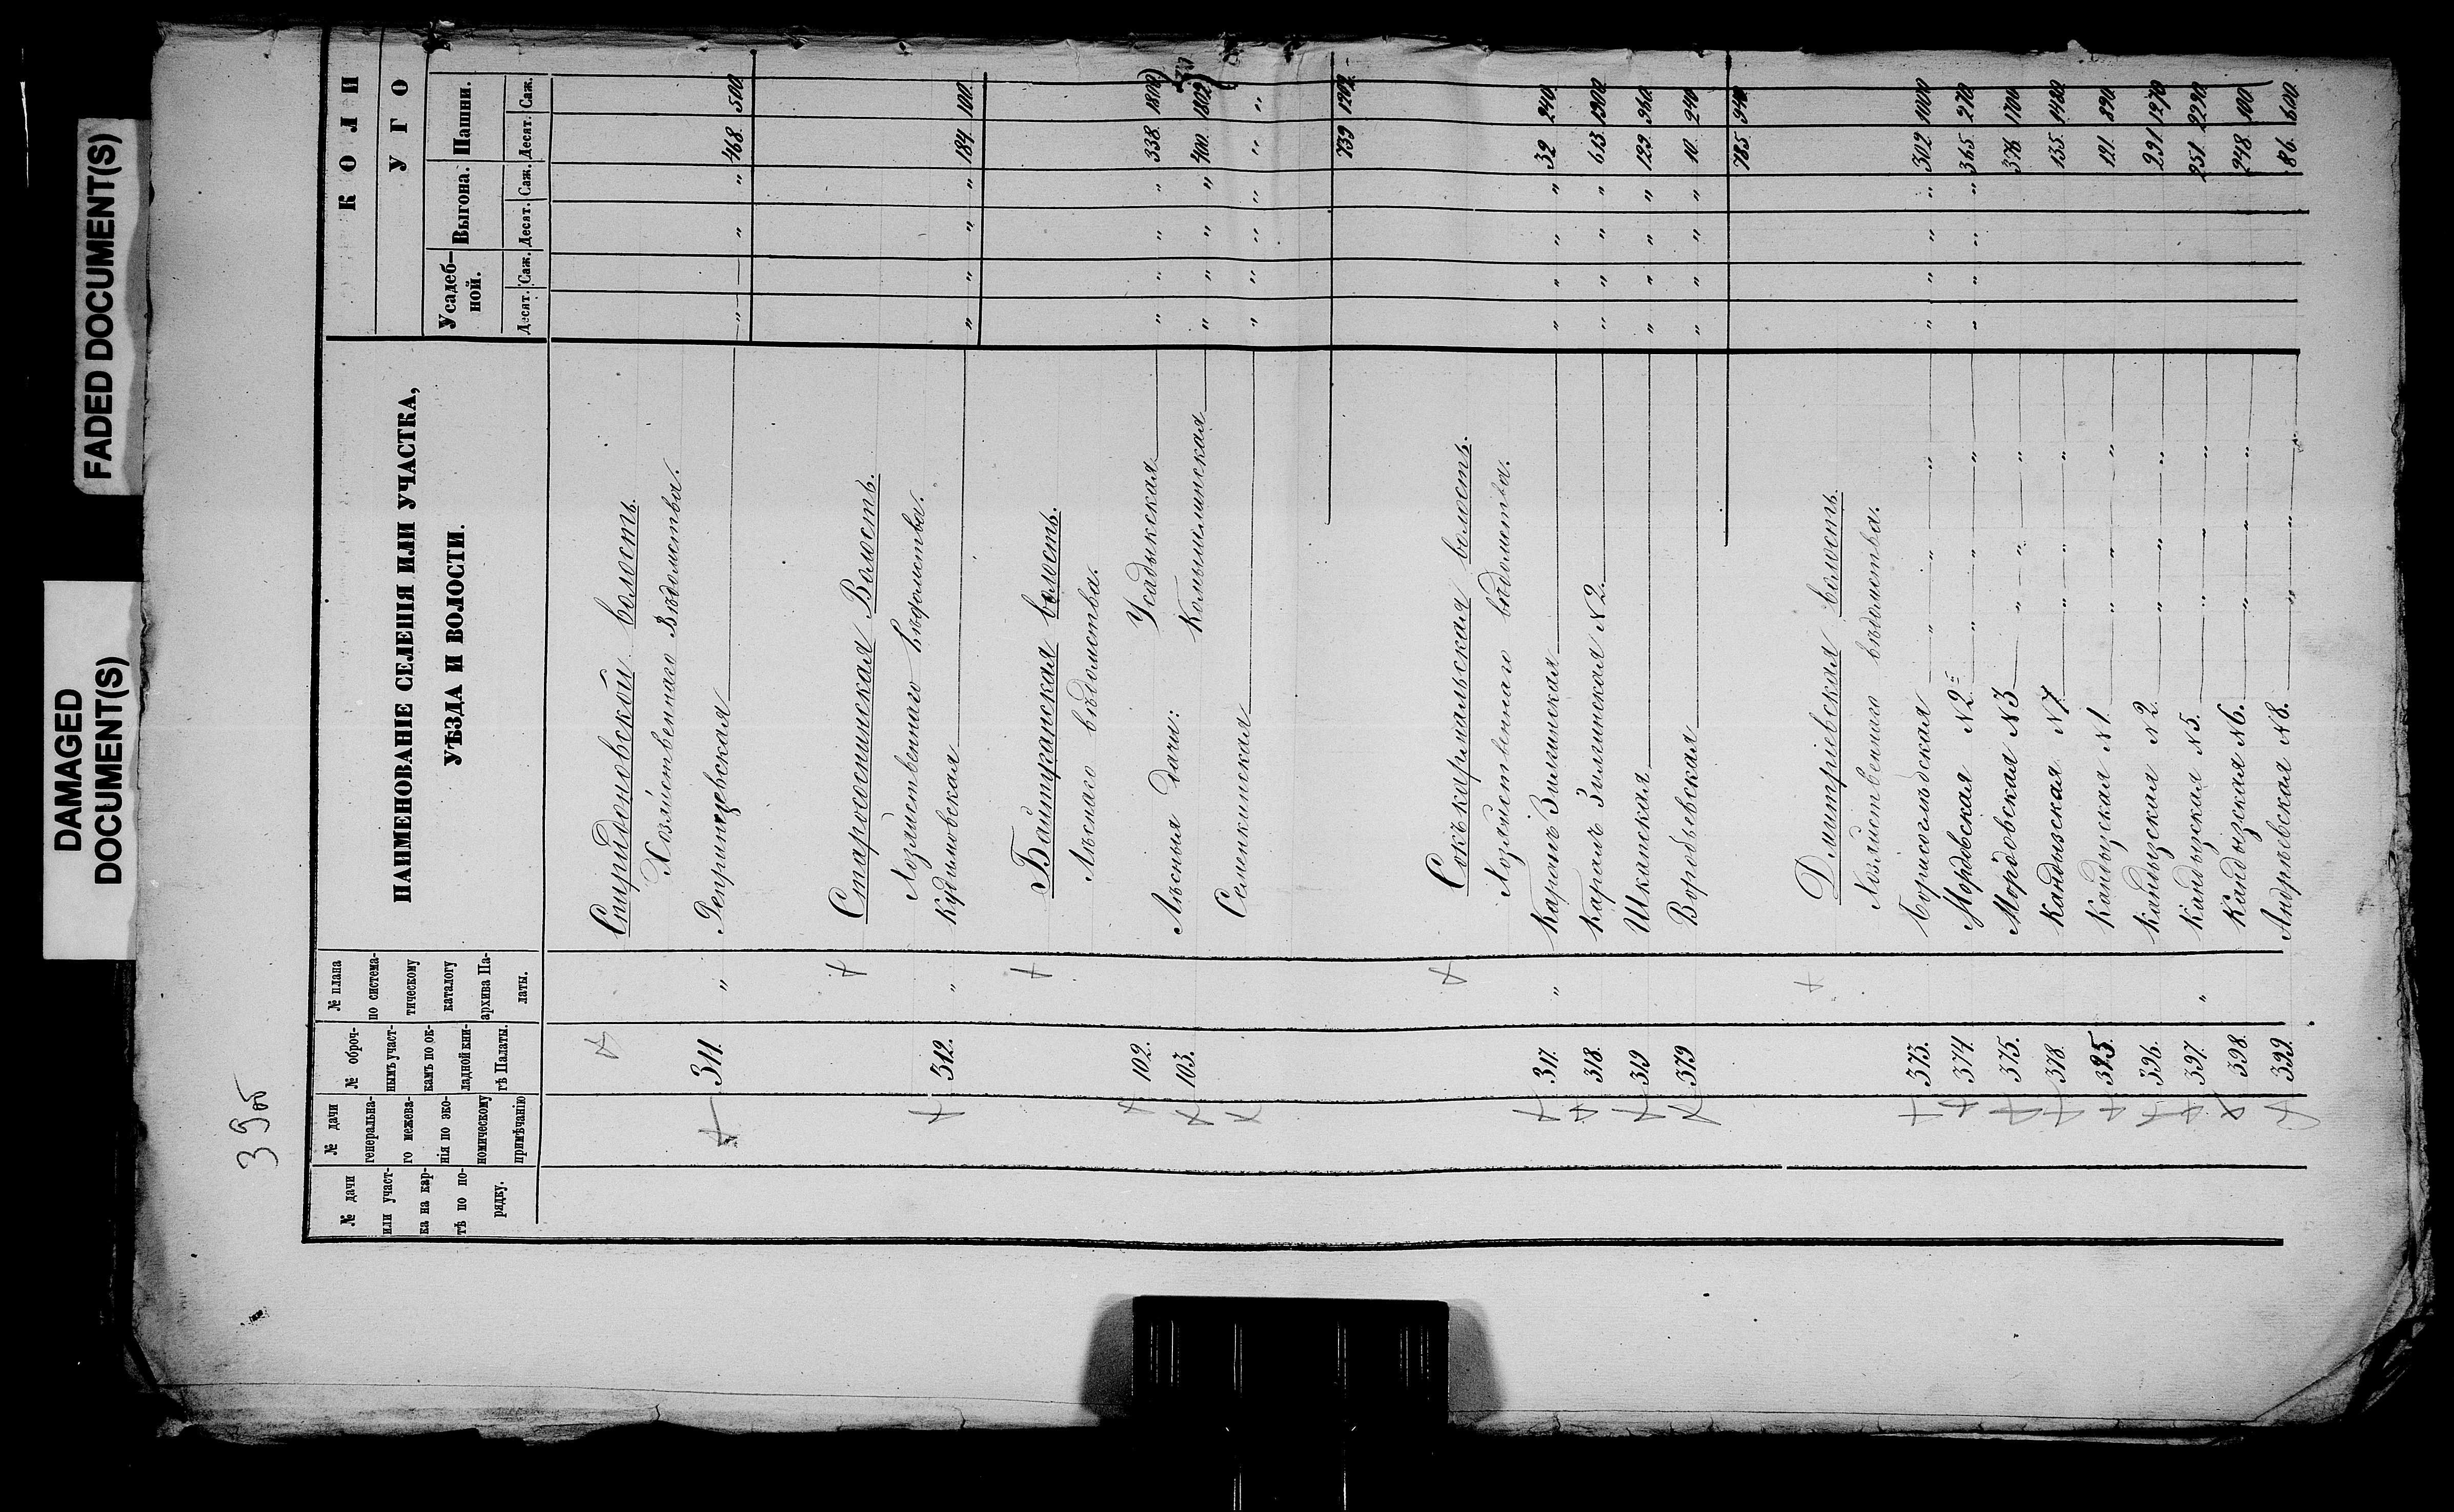 FADED DOCUMENT(S)
DAMAGED
DOCUMENT(S)
39об
К О Л И
У Г О
№ дачи
или участ-
ка на кар-
тѣ по по-
рядку.
№ дачи
генеральна-
го межева-
нія по эко-
номическому
примѣчанію
№ оброч-
нымъ участ-
камъ по ок-
ладной кни-
гѣ Палаты.
№ плана
по система-
тическому
каталогу
архива Па-
латы.
НАИМЕНОВАНІЕ СЕЛЕНІЯ ИЛИ УЧАСТКА,
УѢЗДА И ВОЛОСТИ.
Усадеб-
ной.
Выгона.
Пашни.
Десят. Саж. Десят. Саж. Десят. Саж.
Спиридоновской волость.
Хозяйственнаго Вѣдомства.
311. " Репринцевская " " " 468. 500
Старососнинская Волость.
Хозяйственнаго Вѣдомства.
312. " Кудымовская " " " " 184. 100.
Байтуганская волость.
Лѣснаго вѣдомства.
102. Лѣсныя дачи: Усадыкская " " " " 338. 1800
103. " " " " 400. 1802
Сененкинская " " " " " "
739 1202
волость.
Хозяйственнаго вѣдомства.
317. " " " " " 32 240
318. N 2. " " " " 613 1900
319 Шкапская " " " " 129. 960
379 Воробьевская " " " " 10. 240
785. 940
Дмитріевская волость.
Хозяйственнаго вѣдомства.
373. Борисоглѣбская " " " " " " 302. 1000
374 Мордовская N 2 " " " " " " " 365. 270
375. Мордовская N 3 " " " 376 1700
378. Кандызская N 7 " " " 135. 1480
395. Кандызская N 1 " " " 121. 890
396. Кандызская N 2. " " " 291 1270
397. " Кандызская N 5. " " " 251. 2290
398. Кандызская N 6. " " " 248. 100
399. Андреевская N 8. " " " 86. 600